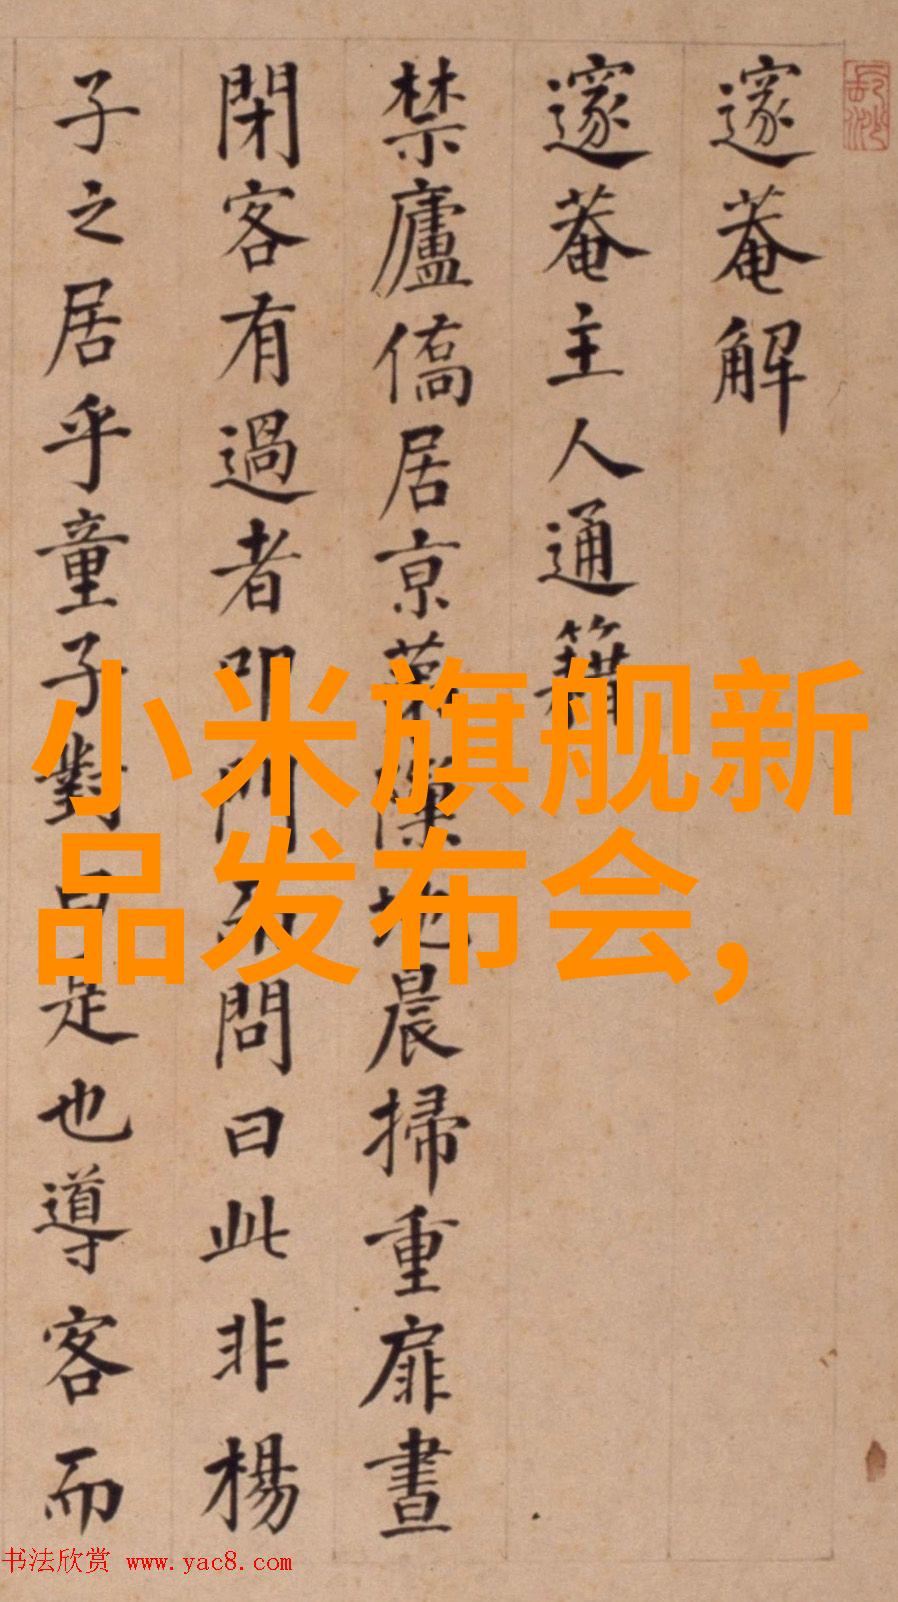 邃菴解
邃菴主人通籍
禁廬僑居京地晨掃重扉晝
閉客有過者叩門而問曰此非楊
子之居乎童子對曰是也導客而
小米旗舰新
品发布会,
书法欣赏 www.yac8.com